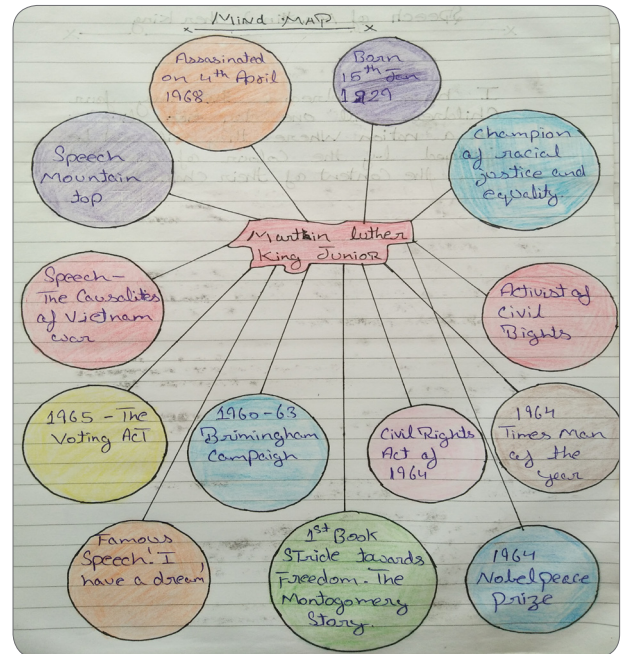 MIND MAP
Assasinated
on 4th April
1968.
Born
15th Jan
1929
Speech
Mountain
top
Champion
of racial
justice and
equality.
Martin luther
King Junior
Speech-
The Causalites
of Vietnam
war
Activist of
Civil
Rights
1965 - The
Voting Act
1960-63
Brimingham
Campaign
Civil Rights
Act of
1964
1964
Times Man
of the
year
Famous
Speech! I
have a dream
1st Book
Stride towards
Freedom. The
Montogomery
Story.
1964
Nobel peace
prize